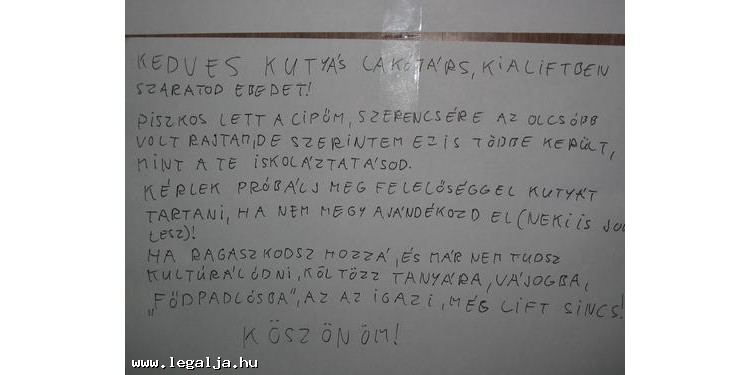 KEDVES KUTYÁS LAKÓTÁRS, KI A LIFTBEN
SZARATOD EBEDET!
PISZKOS LETT A CIPŐM, SZERENCSÉRE AZ OLCSÓBB
VOLT RAJTAM, DE SZERINTEM EZ IS TÖBBE KERÜLT,
MINT A TE ISKOLÁZTATÁSOD.
KÉRLEK PRÓBÁLJ MEG FELELŐSÉGGEL KUTYÁT
TARTANI, HA NEM MEGY AJÁNDÉKOZD EL (NEKI IS JOB
LESZ)!
HA RAGASZKODSZ HOZZÁ, ÉS MÁR NEM TUDSZ
KULTÚRÁLÓDNI, KÖLTÖZZ TANYÁRA, VÁJOGBA,
„FŐDPADLÓSBA", AZ AZ IGAZI, MÉG LIFT SINCS!
KÖSZÖNÖM!
www.legalja.hu